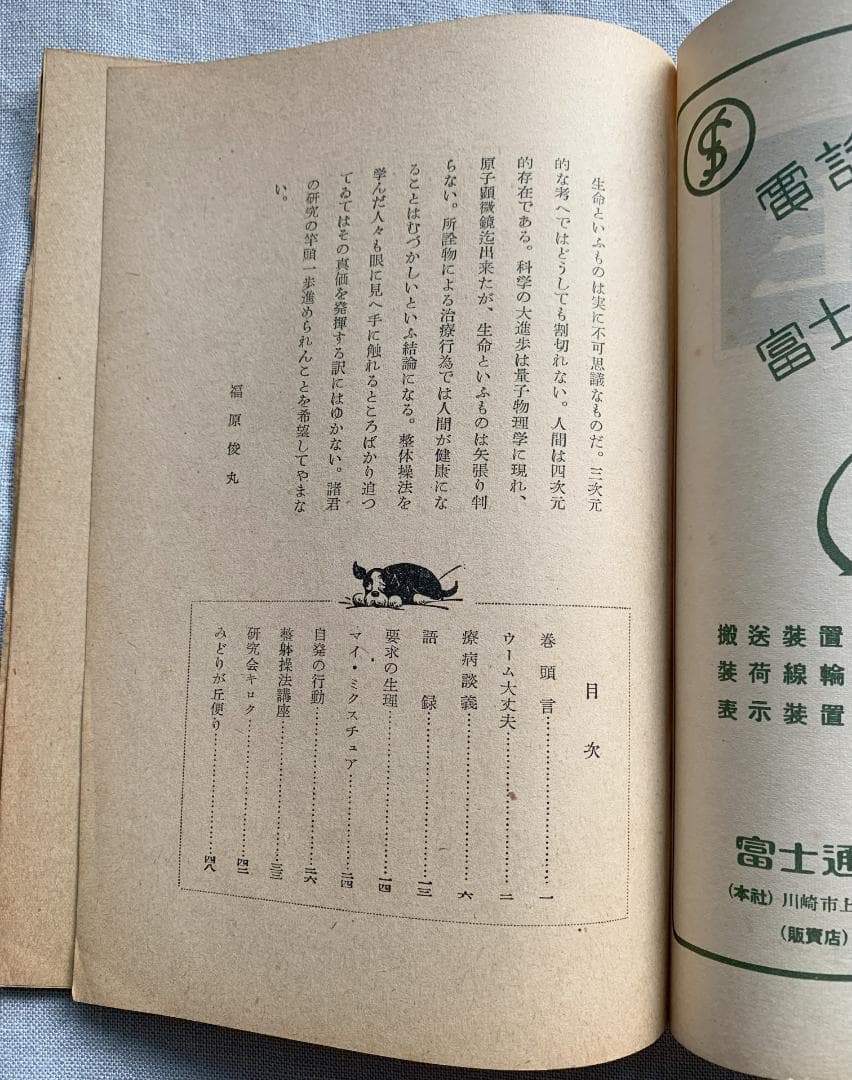 生命といふものは実に不可思議なものだ。三次元
的な考へではどうしても割切れない。人間は四次元
的存在である。科学の大進歩は量子物理学に現れ、
原子顕微鏡迄出来たが、生命といふものは矢張り判
らない。所詮物による治療行為では人間が健康にな
ることはむづかしいといふ結論になる。整体操法を
学んだ人々も眼に見へ手に触れるところばかり追つ
てゐてはその真価を発揮する訳にはゆかない。諸君
の研究の竿頭一歩進められんことを希望してやまな
い。
福原俊丸
目次
巻頭言………一
ウーム大丈夫………二
療病談義………六
語録………一三
要求の生理………一四
マイ・ミクスチュア………二四
自発の行動………二六
整躰操法講座………三三
研究会キロク………四二
みどりが丘便り………四八
電話
富士
搬送装置
装荷線輪
表示装置
富士通
(本社)川崎市上
(販賣店)